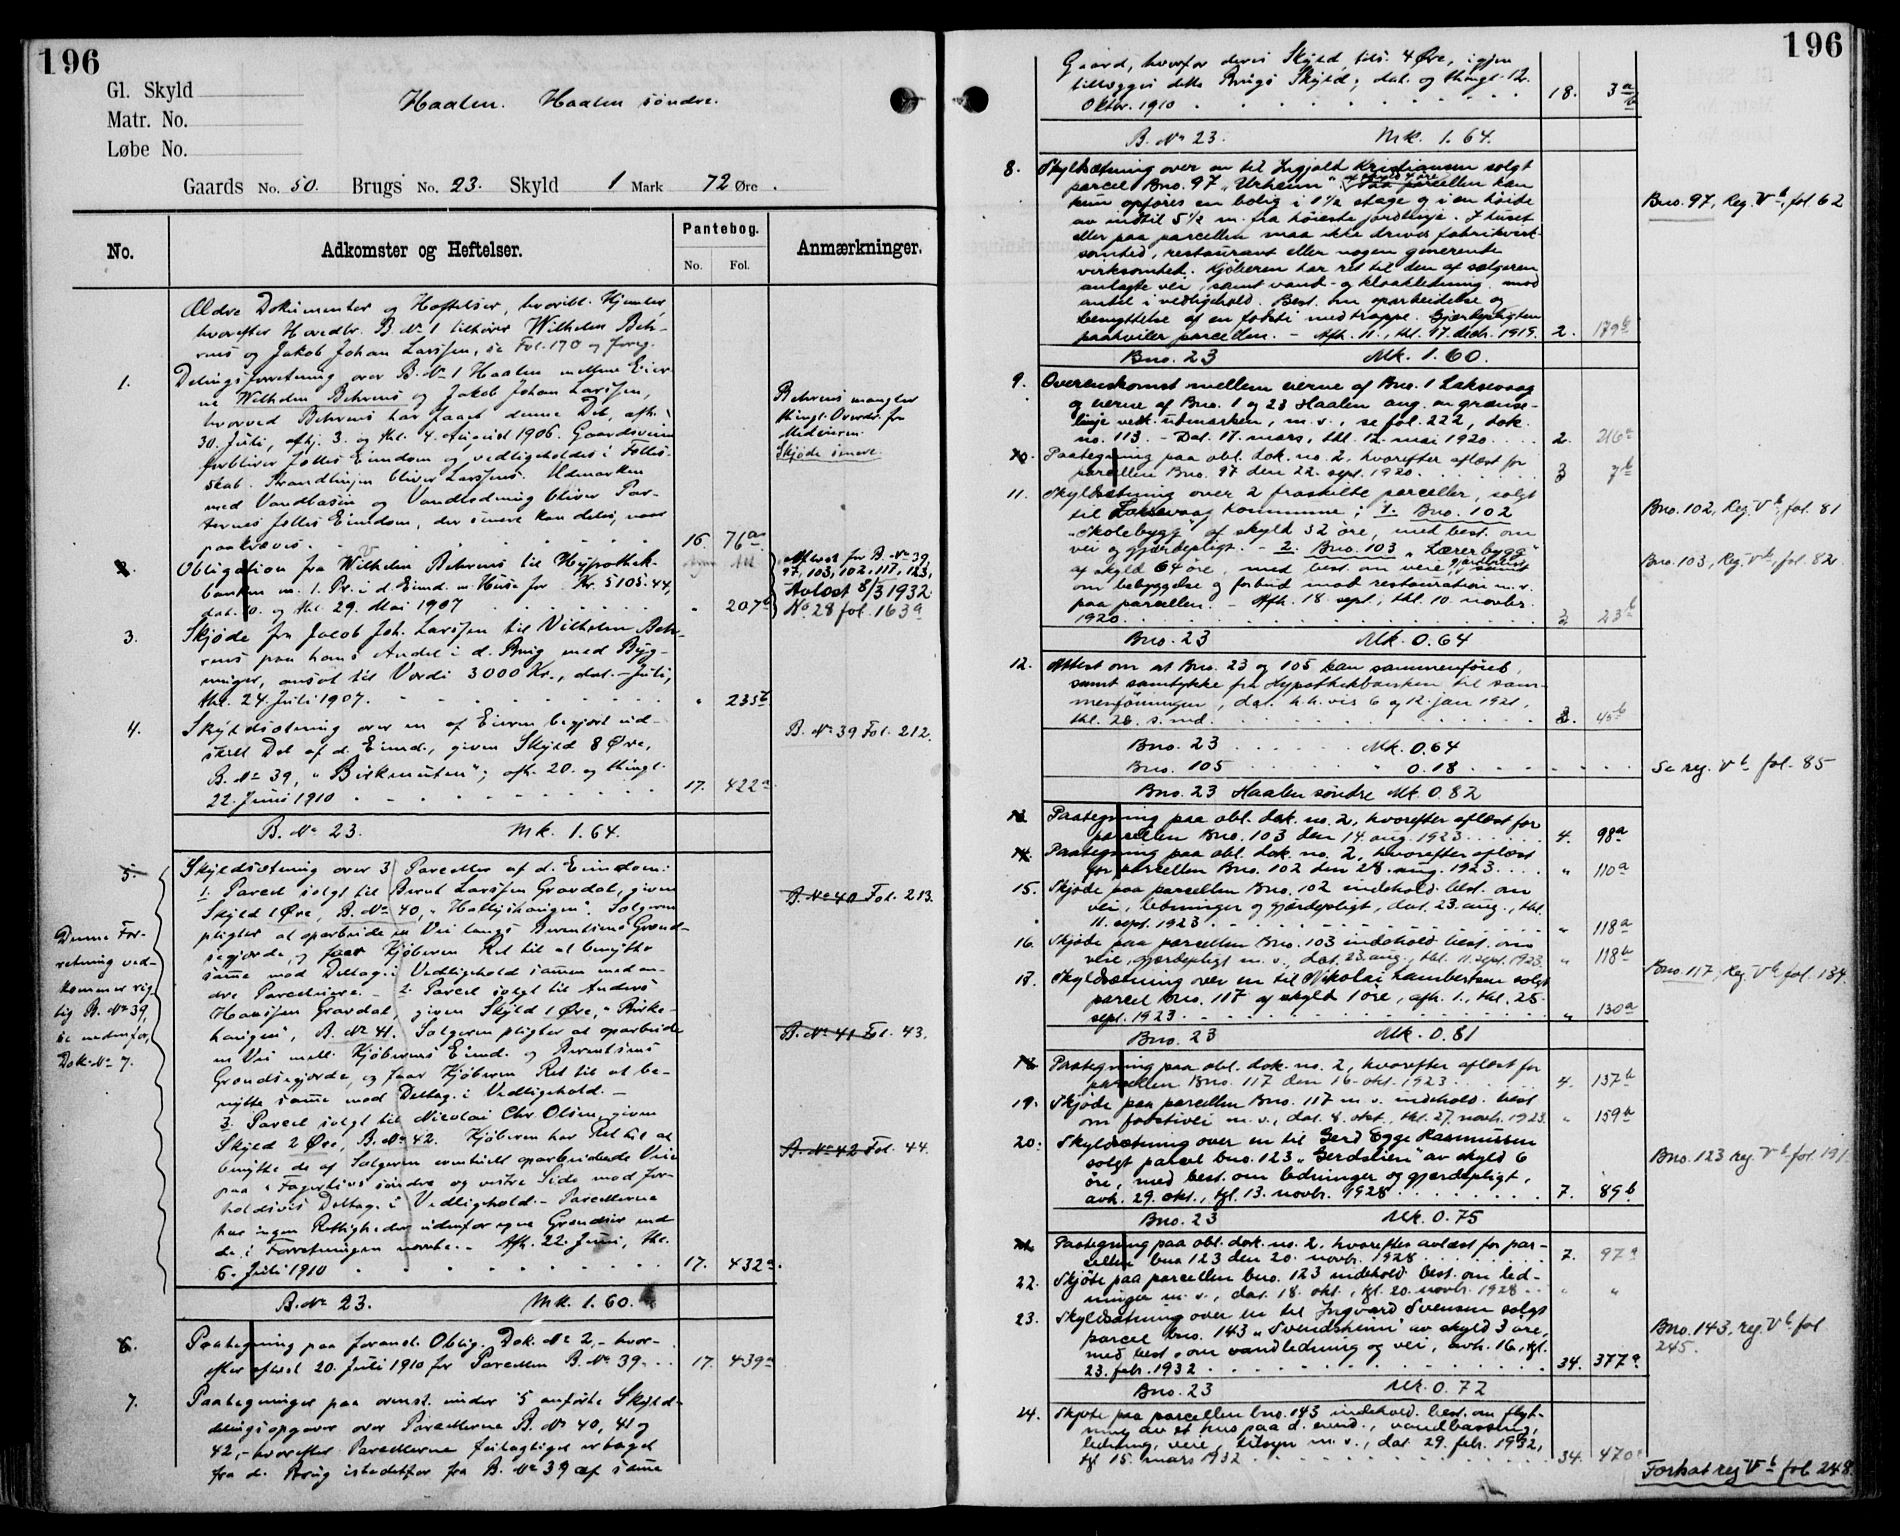 196
Gl. Skyld
Haalen. Haalen søndre.
Matr. No.
Løbe No.
Gaards No. 50. Brugs No. 23. Skyld 1 Mark 72 Øre.
No. Adkomster og Heftelser. Pantebog. Anmærkninger.
No. Fol.
Ældre Dokumenter og Heftelser, hvoribl. Hjemler,
hvorefter Hovedbr. B. No 1 tilhører Wilhelm Beh-
rens og Jakob Johan Larssen, se Fol. 170 og foreg.
1. Delingsforretning over B. No 1 Haalen mellem Eier-
ne Wilhelm Behrens og Jakob Johan Larssen,
hvorved Behrens har faaet denne Del, afh.
30. Juli, afhj. 3. og thl. 4. August 1906. Gaardsveien
forbliver fælles Eiendom og vedligeholdes i Fælles-
skab. Strandlinjen bliver Larssens. Udmarken
med Vandbasin og Vandledning bliver Par-
ternes fælles Eiendom, der senere kan deles, naar
paakræves. 16. 76a
Behrens mangler
thingl. Overdr. fra
Medeieren.
Skjøde senere.
2. Obligation fra Wilhelm Behrens til Hypothek-
banken m. 1. Pr. i d. Eiend. m. Huse for Kr. 5105.44,
dat. 10. og thl. 29. Mai 1907 " 207b
Afløst for B. No 39,
97, 103, 102, 117, 123,
Avløst 8/3 1932
No. 28 fol. 163a
3. Skjøde fra Jacob Joh. Larssen til Vilhelm Beh-
rens paa hans Andel i d. Brug med Byg-
ninger, ansat til Verdi 3000 Kr., dat. - Juli,
thl. 24. Juli 1907. " 235b
4. Skyldsætning over en af Eieren begjært ud-
skilt Del af d. Eiend., given Skyld 8 Øre,
B. No 39, "Birkenuten"; afh. 20. og thingl.
22. Juni 1910 17. 422a
B. No 39 Fol. 212.
B. No 23. Mk. 1.64.
5. Skyldsætning over 3 Parceller af d. Eiendom:
1. Parcel solgt til Bernt Larssen Gravdal, given
Skyld 1 Øre, B. No 40, "Hallijshaugen". Sælgeren
pligter at oparbeide en Vei langs Berentsens Grænd-
segjærde, og faar Kjøberen Ret til at benytte
samme mod Deltag. i Vedligehold sammen med an-
dre Parceleiere. - 2. Parcel solgt til Anders
Hanssen Gravdal, given Skyld 1 Øre, "Birke-
haugen", B. No 41. Sælgeren pligter at oparbeide
en Vei mell. Kjøberens Eiend. og Berentsens
Grændsegjærde, og faar Kjøberen Ret til at be-
nytte samme mod Deltag. i Vedligehold. -
3. Parcel solgt til Nicolai Chr. Olsen, given
Skyld 2 Øre, B. No 42. Kjøberen har Ret til at
benytte de af Sælgeren eventuelt oparbeidede Veie
paa "Fagerlies" søndre og vestre Side mod for-
holdsvis Deltag. i Vedligehold. - Parcellerne
har ingen Rettigheder udenfor egne Grændser end
de i Forretningen nævnte. - Afh. 22. Juni, thl.
6. Juli 1910 17. 432a
Denne For-
retning ved-
kommer rig-
tig B. No 39,
se nedenfor,
Dok. No 7.
B. No 40 Fol. 213.
B. No 41 Fol. 43.
B. No 42 Fol. 44.
B. No 23. Mk. 1.60.
6. Paategning paa foranst. Oblig. Dok. No 2, - hvor-
efter afløst 20. Juli 1910 for Parcellen B. No 39. 17. 439a
7. Paategninger paa ovenst. under 5 anførte Skyld-
delingsopgaver over Parcellerne B. No 40, 41 og
42, - hvorefter Parcellerne feilagtigt er taget
fra d. Brug istedetfor fra B. No 39 af samme
196
Gaard, hvorfor deres Skyld, tils. 4 Øre, igjen
tillægges dette Brugs Skyld; dat. og thingl. 12.
Oktbr. 1910 18. 3a/b
B. No 23. Mk. 1.64.
8. Skyldsætning over en til Ingjald Kristiansen solgt
parcel Bno. 97 "Urheim" af skyld 4 øre. Paa parcellen kan
kun opføres en bolig i 1½ etage og i en høide
av indtil 5½ m. fra høieste jordlinje. I huset
eller paa parcellen maa ikke drives fabrikvirk-
somhed, restaurant eller nogen generende
virksomhet. Kjøberen har ret til den af sælgeren
anlagte vei, samt vand- og kloakledning mod
andel i vedligehold. Best. om oparbeidelse og
benyttelse af en fotsti med trappe. Gjærdepligten
paahviler parcellen. - Afh. 11., thl. 17. decbr. 1919. 2. 179b
Bno. 97, Reg. Vb, fol 62
Bno. 23 Mk. 1.60.
9. Overenskomst mellem eierne af Bno. 1 Laksevaag
og eierne af Bno. 1 og 23 Haalen ang. en grænse-
linje vedk. utmarken, m. v., se fol. 222, dok.
no. 113. - Dat. 17. mars, thl. 12. mai 1920. 2. 216a
10. Paategning paa obl. dok. no. 2, hvorefter afløst for
parcellen Bno. 97 den 22. sept. 1920. 3 7b
11. Skyldsætning over 2 fraskilte parceller, solgt
til Laksevaag kommune; 1. Bno. 102
"Skolebygg" af skyld 32 øre, med best. om
vei og gjærdepligt. - 2. Bno. 103 "Lærerbygg"
af skyld 64 øre, med best. om veie, gjærdepligt, samt
om bebyggelse og forbud mot restauration m. v.
paa parcellen. - Afh. 18. sept., thl. 10. novbr.
1920. 3 23b
Bno. 102, Reg. Vb, fol. 81
Bno. 103, Reg. Vb, fol. 82
Bno. 23 Mk. 0.64
12. Attest om at Bno. 23 og 105 kan sammenføies,
samt samtykke fra Hypothekbanken til sam-
menføiningen, dat. h. h. vis 6 og 12. jan 1921,
thl. 26. s. md. 3. 45b
Bno. 23 Mk. 0.64
Bno. 105 " 0.18
Se reg. Vb fol. 85
Bno. 23 Haalen søndre Mk. 0.82
13. Paategning paa obl. dok. no. 2, hvorefter afløst for
parcellen Bno. 103 den 14 aug. 1923. 4. 98a
14. Paategning paa obl. dok. no. 2, hvorefter afløst
for parcellen Bno. 102 den 28. aug. 1923. " 110a
15. Skjøde paa parcellen Bno. 102 indehold. best. om
vei, ledninger og gjærdepligt, dat. 23. aug., thl.
11. sept. 1923 " 118a
16. Skjøde paa parcellen Bno. 103 indehold. best. om
veie, gjærdepligt m. v., dat. 23. aug., thl. 11. sept. 1923 " 118b
17. Skyldsætning over en til Nikolai Lambertsen solgt
parcel Bno. 117 af skyld 1 øre, afh. 1., thl. 25.
sept. 1923. " 130a
Bno. 117, Reg. Vb, fol. 134.
Bno. 23 Mk. 0.81
18. Paategning paa obl. dok. no. 2, hvorefter afløst for
parcellen Bno. 117 den 16. okt. 1923 4. 137b
19. Skjøde paa parcellen Bno. 117 m. v. indehold. best.
om fodstivei m. v., dat. 8. okt., thl. 27. novb. 1923. " 159a
20. Skyldsætning over en til Gerd Egge Rasmussen
solgt parcel bno. 123 "Gerdslien" av skyld 6
øre, med best. om ledninger og gjerdepligt,
avh. 29. okt., tgl. 13. novbr. 1928 7. 89b
Bno. 123 reg. Vb fol. 191.
Bno. 23 Mk. 0.75
21. Paategning paa obl. dok. no. 2. hvorefter avløst for par-
cellen bno. 123 den 20. novbr. 1928 7. 97a
22. Skjøte paa parcellen bno. 123 indehold. best. om led-
ninger m. v., dat. 18. okt., tgl. 20. novbr. 1928 " "
23. Skyldsætning over en til Ingvard Svensen solgt
parcel bno. 143 "Svendsheim" av skyld 3 øre,
med best. om vandledning og vei, avh. 16., tgl.
23. febr. 1932 34. 377a
Bno. 143, reg. Vb fol
245.
Bno. 23 Mk. 0.72
24. Skjøte paa parcellen bno. 143 indehold. best. om flyt-
ning av et hus paa d. eiend., vandbassin,
ledning, veie, tilsyn m. v., dat. 29. febr. 1932,
tgl 15. mars 1932 34. 470a
Fortsat reg Vb fol 248.